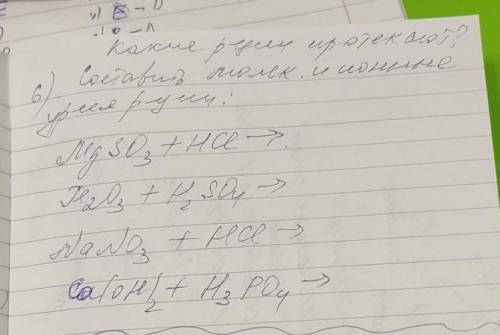 Какие р-ции протекают?
6) Составить молек. и ионные
ур-ия р-ции:
MgSO₃ + HCl →.
+ H₂SO₄ →
NaNO₃ + HCl →
Ca(OH)₂ + H₃PO₄ →